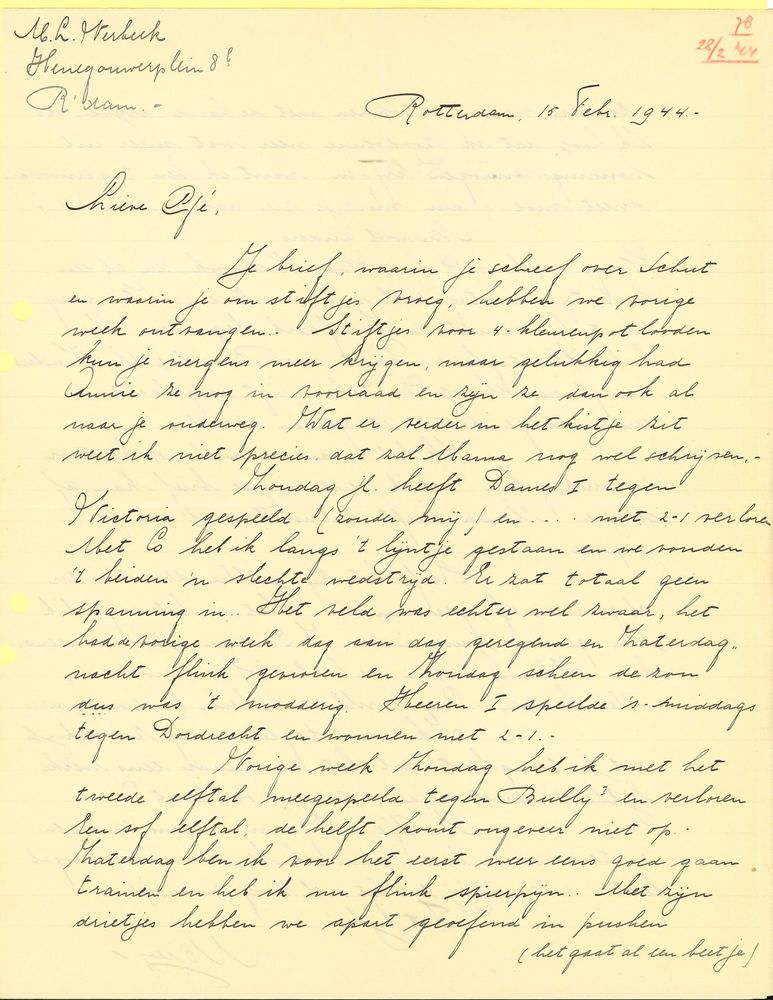 M.L. Werbeek
Henegouwerplein 8b
R'dam.-
78
28/2 '44
Rotterdam, 15 Febr. 1944.-
Lieve Pé,
Je brief, waarin je schreef over Schut
en waarin je om stiftjes vroeg, hebben we vorige
week ontvangen.. Stiftjes voor 4-kleurenpotlooden
kun je nergens meer krijgen, maar gelukkig had
Annie ze nog in voorraad en zijn ze dan ook al
naar je onderweg. Wat er verder in het kistje zit
weet ik niet precies, dat zal Mama nog wel schrijven.-
Zondag jl. heeft Dames I tegen
Victoria gespeeld (zonder mij) en .... met 2-1 verloren
Met Co heb ik langs 't lijntje gestaan en we vonden
't beiden 'n slechte wedstrijd. Er zat totaal geen
spanning in.. Het veld was echter wel zwaar, het
had de vorige week dag aan dag geregend en Zaterdag-
nacht flink gevroren en Zondag scheen de zon
dus was 't modderig. Heeren I speelde 's-middags
tegen Dordrecht en wonnen met 2-1.-
Vorige week Zondag heb ik met het
tweede elftal meegespeeld tegen Bully 3 en verloren
Een sof elftal, de helft komt ongeveer niet op.-
Zaterdag ben ik voor het eerst weer eens goed gaan
trainen en heb ik nu flink spierpijn.. Met zijn
drietjes hebben we apart geoefend in pushen
(het gaat al een beetje)